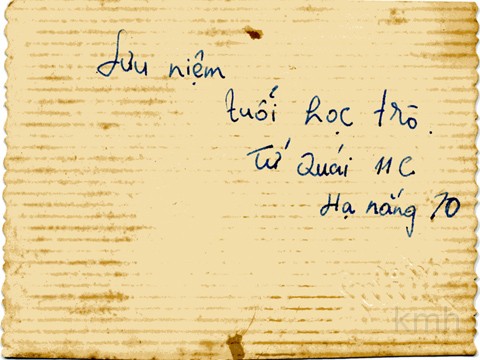 Lưu niệm
tuổi học trò.
Tứ Quái 11C
Hạ nắng 70
kmh